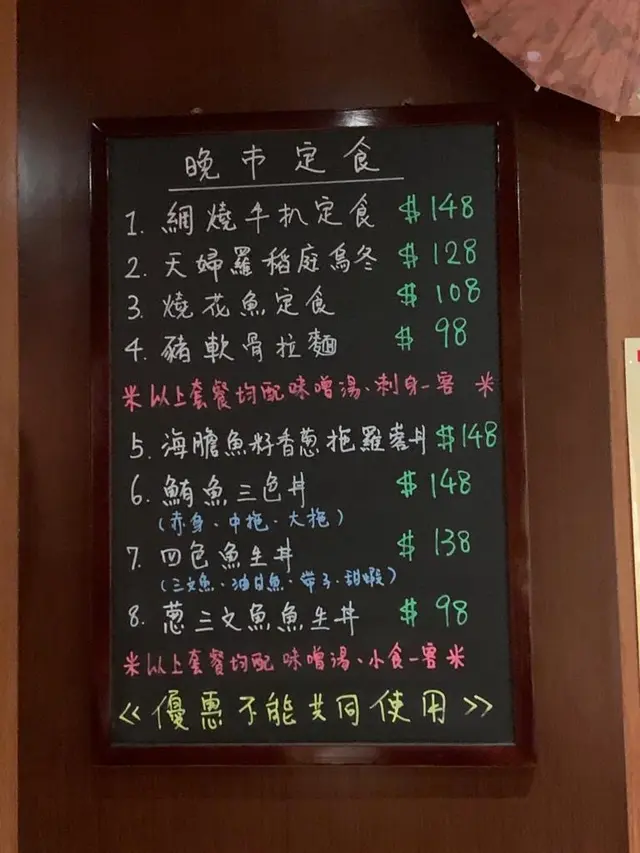 晚市定食
1. 網燒牛扒定食 $148
2. 天婦羅稻庭烏冬 $128
3. 燒花魚定食 $108
4. 豬軟骨拉麵 $98
※以上套餐均配味噌湯、刺身一客 ※
5. 海膽魚籽香蔥拖羅蓉丼 $148
6. 鮪魚三色丼 $148
(赤身·中拖·大拖)
7. 四色魚生丼 $138
(三文魚·油甘魚·帶子·甜蝦)
8. 蔥三文魚魚生丼 $98
※以上套餐均配味噌湯、小食一客※
<<優惠不能共同使用>>